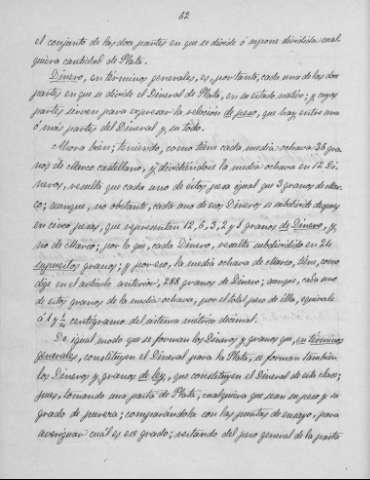 82
el conjunto de las dos partes en que se divide ó supone dividida cual-
quiera cantidad de Plata.
Dinero, en términos generales, es, por tanto, cada una de las doce
partes en que se divide el Dineral de Plata, en su estado nativo; y cuyas
partes sirven para expresar la relación de peso, que hay entre una
ó más partes del Dineral y su todo.
Ahora bien; teniendo, como tiene cada media ochava 36 gra-
nos de Marco castellano, y dividiéndose la media ochava en 12 Di-
neros, resulta que cada uno de éstos pesa igual que 3 granos de Mar-
co; aunque, no obstante, cada uno de esos Dineros se subdivide después
en cinco pesas, que representan 12, 6, 3, 2 y 1 granos de Dinero, y
no de Marco; por lo que, cada Dinero, resulta subdividido en 24
supuestos granos; y por eso, la media ochava de Marco, tiene, como
dije en el artículo anterior, 288 granos de Dinero; aunque, cada uno
de estos granos de la media ochava, por el total peso de ella, equivale
á 1 y centígramo del sistema métrico decimal.
De igual modo que se forman los Dineros y granos que, en términos
generales, constituyen el Dineral para la Plata, se forman también
los Dineros y granos de ley, que constituyen el Dineral de esta clase;
pues, tomando una pasta de Plata, cualquiera que sean su peso y su
grado de pureza; comparándola con las puntas de ensayo, para
averiguar cuál es ese grado; restando del peso general de la pasta